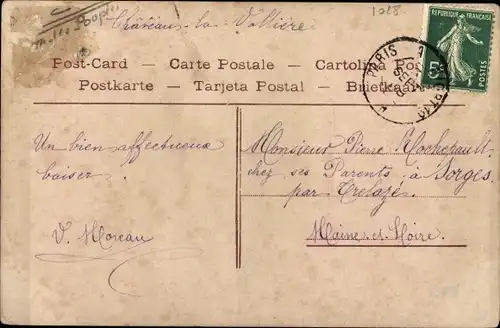 Château-la-Vallière 1028
REPUBLIQUE FRANÇAISE
5
PARIS
Post-Card — Carte Postale — Cartolina Postale
Postkarte — Tarjeta Postal — Briefkaart
Un bien affectueux
baiser.
V. Moreau
Monsieur Pierre Rocherault
chez ses Parents à Sorges
par Trélazé.
Maine-et-Loire.